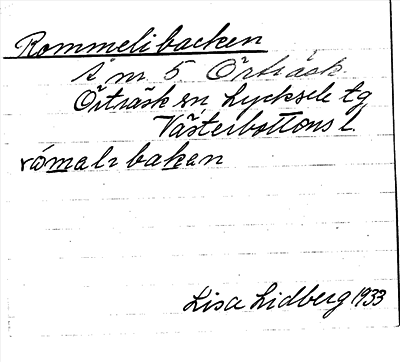 Rommelibacken
i m 5 Örträsk.
Örträsk sn Lycksele tg
Västerbottens l.
rómalıbakan
Lisa Lidberg 1933